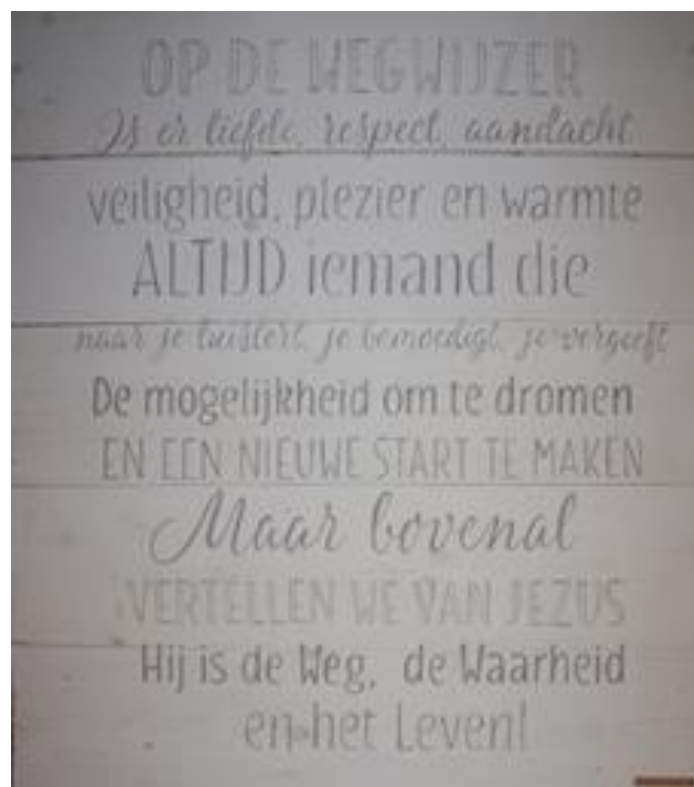 OP DE WEGWIJZER
Is er liefde, respect, aandacht
veiligheid, plezier en warmte
ALTIJD iemand die
naar je luistert, je bemoedigt, je vergeeft
De mogelijkheid om te dromen
EN EEN NIEUWE START TE MAKEN
Maar bovenal
VERTELLEN WE VAN JEZUS
Hij is de Weg, de Waarheid
en het Leven!